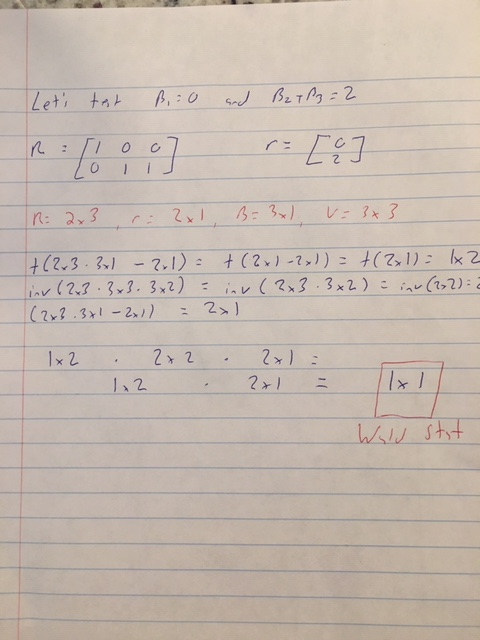 Let's test β₁=0 and β₂+β₃=2
R = [1 0 0 r = [0
0 1 1] 2]
R= 2x3, r= 2x1, B= 3x1, V= 3x3
t(2x3 · 3x1 - 2x1) = t(2x1-2x1) = t(2x1) = 1x2
inv(2x3 · 3x3 · 3x2) = inv(2x3 · 3x2) = inv(2x2)=2
(2x3 · 3x1 - 2x1) = 2x1
1x2 · 2x2 · 2x1 =
1x2 · 2x1 = 1x1
Wald stat